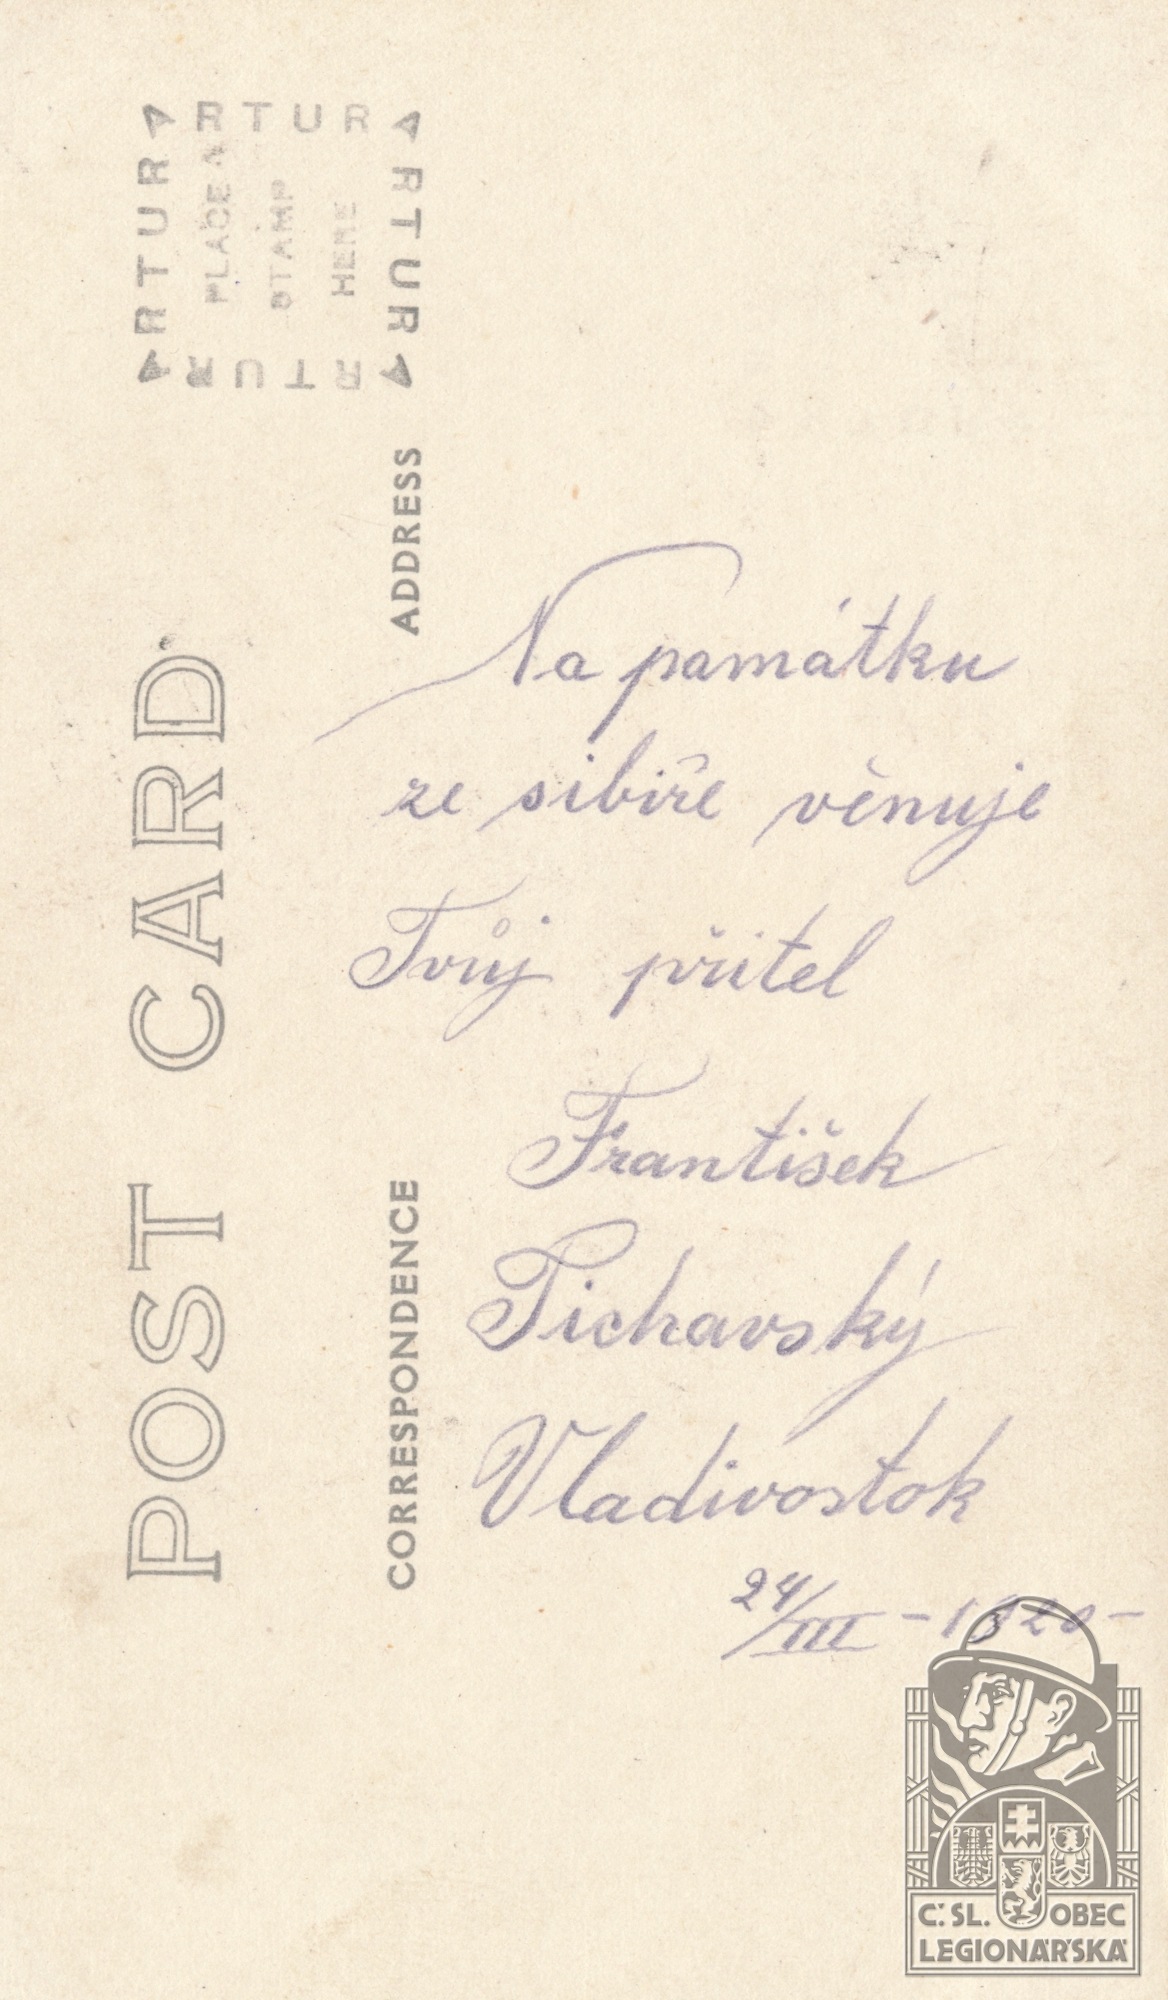 POST CARD
CORRESPONDENCE
ADDRESS
ARTURA
ARTURA
ARTURA
ARTURA
PLACE
STAMP
HERE
Na památku
ze sibiře věnuje
Tvůj přítel
František
Tichavský
Vladivostok
24/III - 1920 -
Č. SL. OBEC
LEGIONÁŘSKÁ